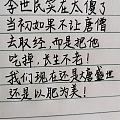 李世民实在太傻了
当初如果不让唐僧
去取经,而是把他
吃掉,长生不老!
我们现在还是唐盛世
还是以肥为美!